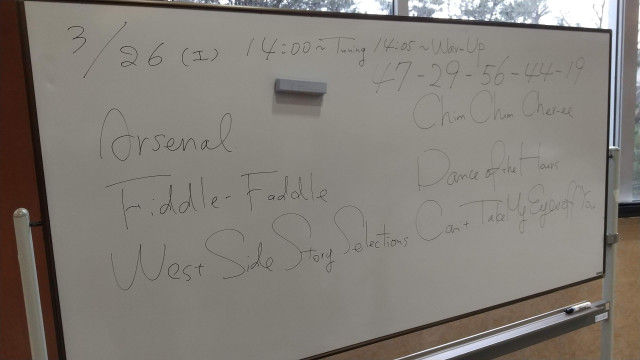 3/26 (工) 14:00~Tuning 14:05~Warm Up
47-29-56-44-19
Chim Chim Cher-ee
Arsenal
Dance of the Hours
Fiddle-Faddle
West Side Story Selections
Can't Take My Eyes off You